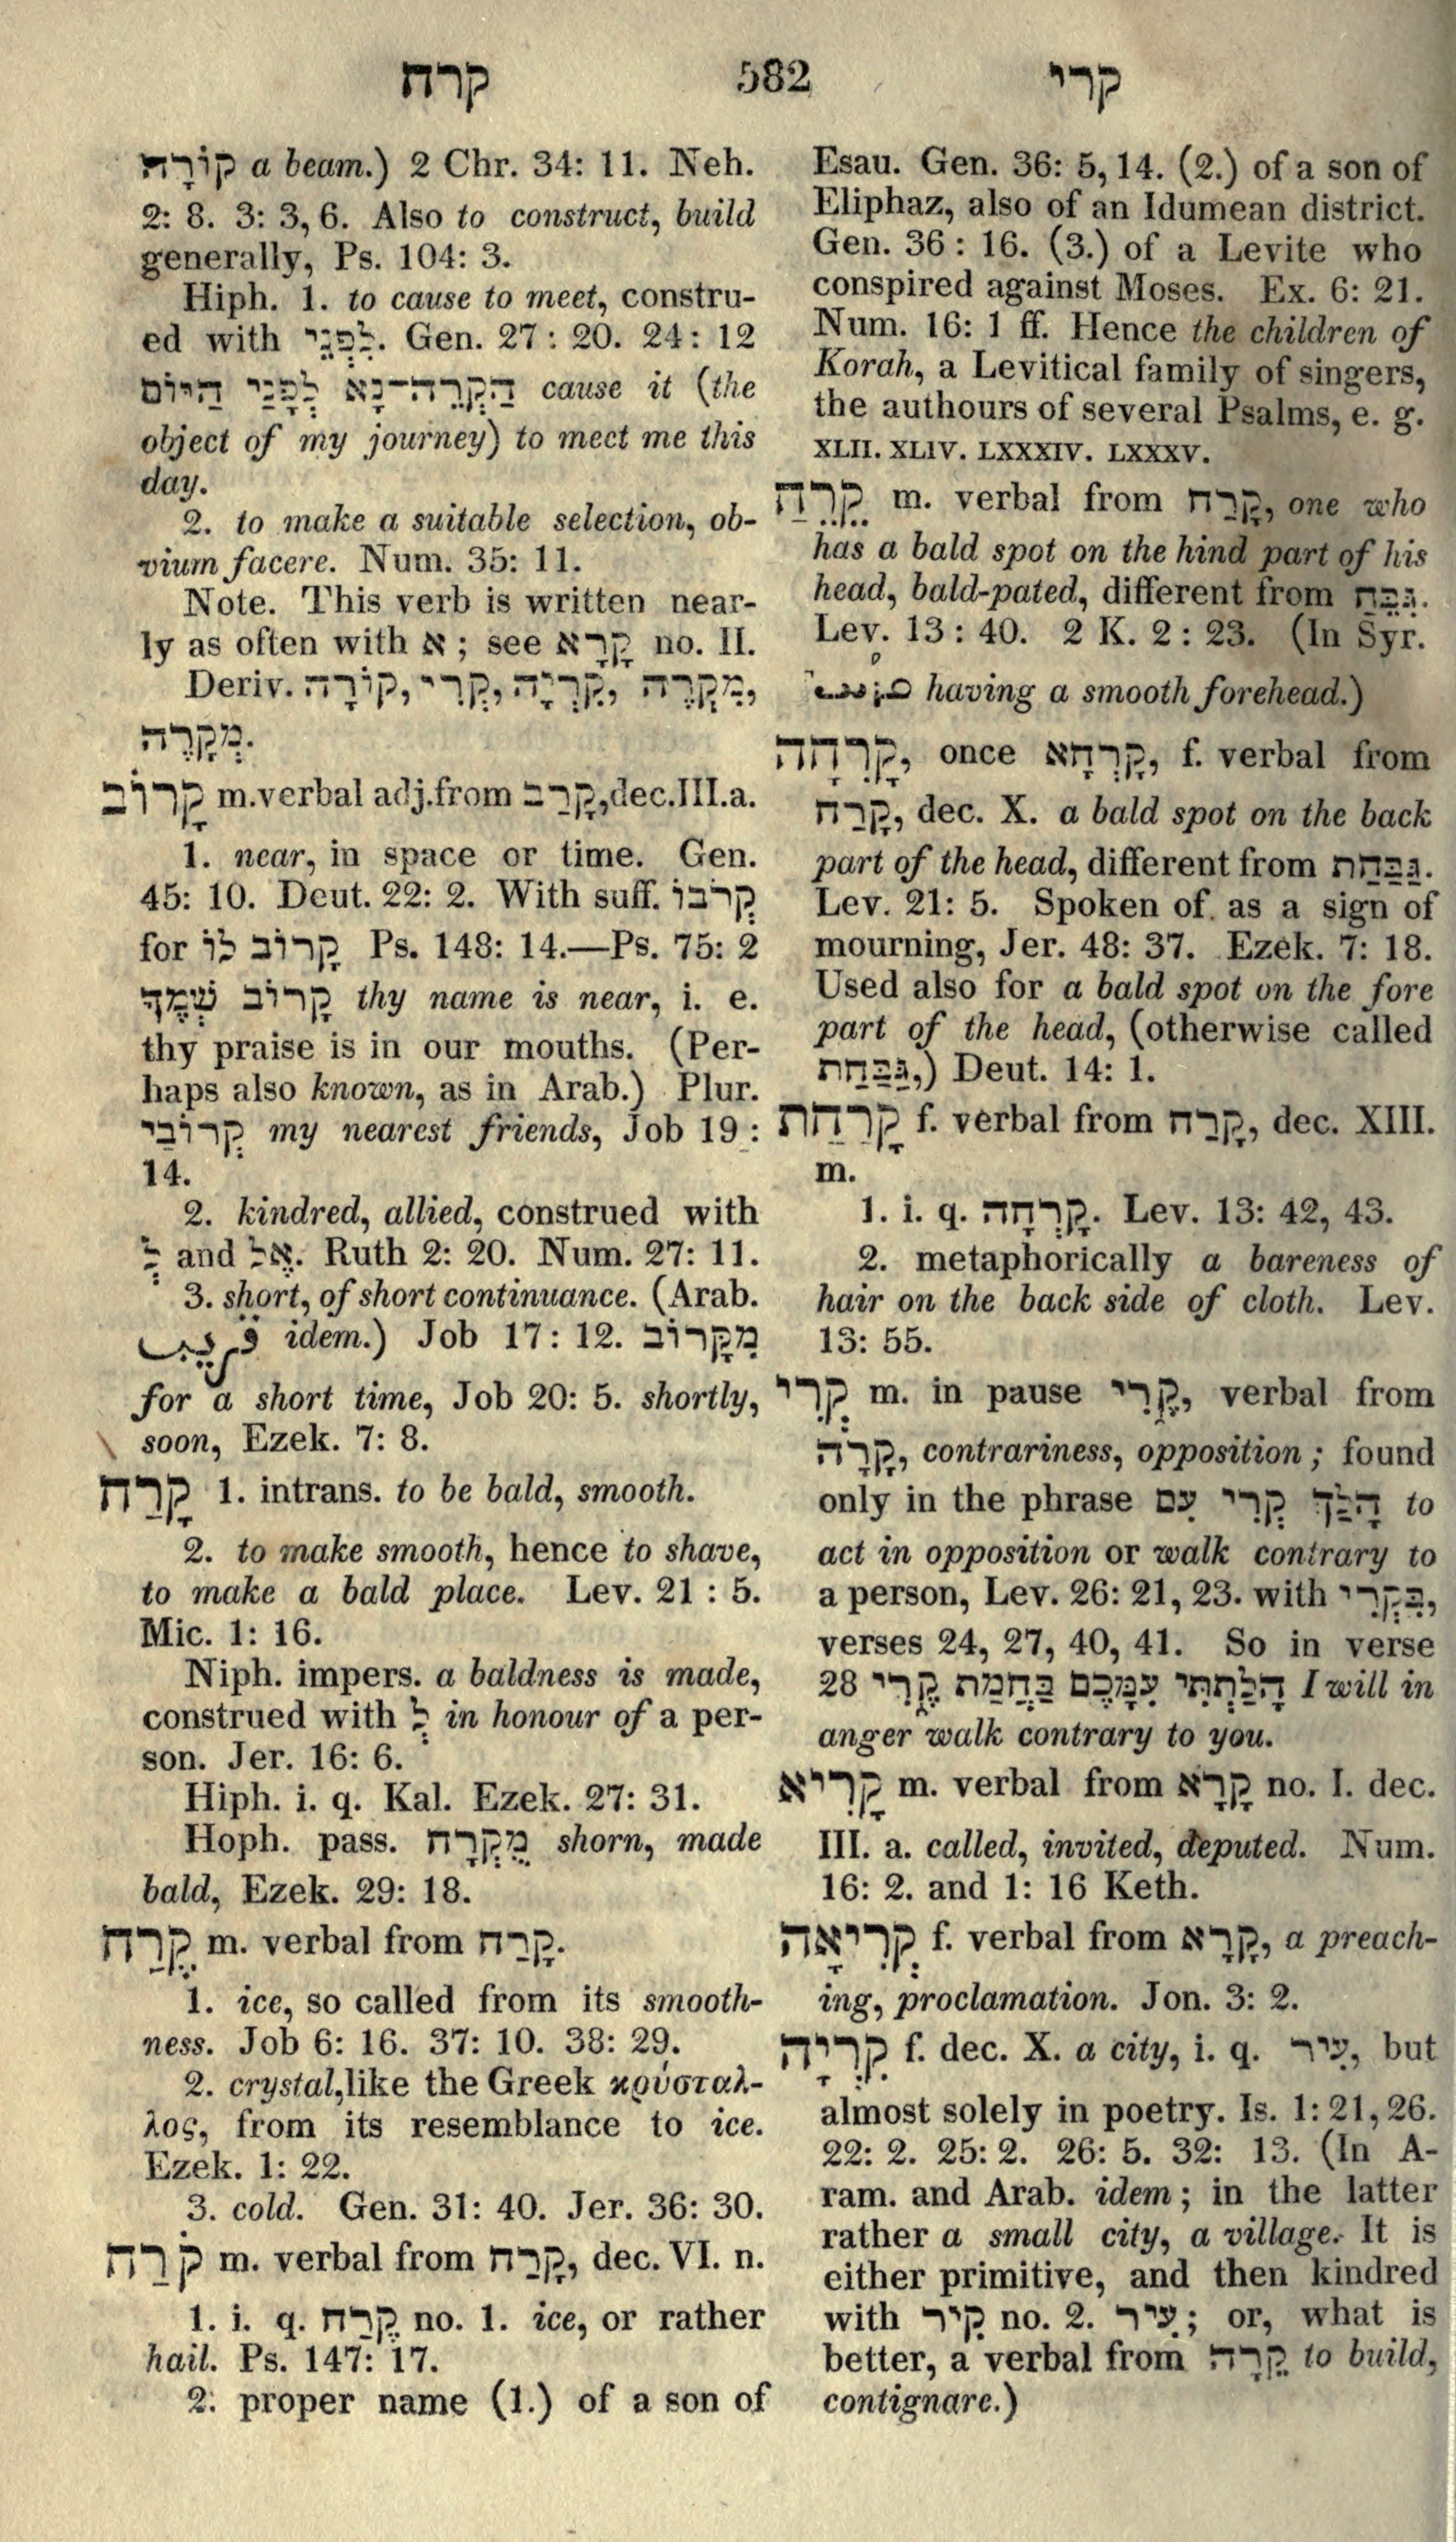 קרח 582 קרי
קוֹרָה a beam.) 2 Chr. 34: 11. Neh.
2: 8. 3: 3, 6. Also to construct, build
generally, Ps. 104: 3.
Hiph. 1. to cause to meet, constru-
ed with לִפְנֵי. Gen. 27: 20. 24: 12
הַקְרֵה־נָא לְפָנַי הַיּוֹם cause it (the
object of my journey) to meet me this
day.
2. to make a suitable selection, ob-
vium facere. Num. 35: 11.
Note. This verb is written near-
ly as often with א; see קָרָא no. II.
Deriv. קוֹרָה, קְרִי, קִרְיָה, מִקְרֶה,
מְקָרֶה.
קָרוֹב m. verbal adj. from קָרַב, dec. III. a.
1. near, in space or time. Gen.
45: 10. Deut. 22: 2. With suff. קְרֹבוֹ
for קָרוֹב לוֹ Ps. 148: 14.—Ps. 75: 2
קָרוֹב שְׁמֶךָ thy name is near, i. e.
thy praise is in our mouths. (Per-
haps also known, as in Arab.) Plur.
קְרוֹבַי my nearest friends, Job 19:
14.
2. kindred, allied, construed with
לְ and אֶל. Ruth 2: 20. Num. 27: 11.
3. short, of short continuance. (Arab.
قَرِيبٌ idem.) Job 17: 12. מִקָּרוֹב
for a short time, Job 20: 5. shortly,
soon, Ezek. 7: 8.
קָרַח 1. intrans. to be bald, smooth.
2. to make smooth, hence to shave,
to make a bald place. Lev. 21: 5.
Mic. 1: 16.
Niph. impers. a baldness is made,
construed with לְ in honour of a per-
son. Jer. 16: 6.
Hiph. i. q. Kal. Ezek. 27: 31.
Hoph. pass. מֻקְרָח shorn, made
bald, Ezek. 29: 18.
קֶרַח m. verbal from קָרַח.
1. ice, so called from its smooth-
ness. Job 6: 16. 37: 10. 38: 29.
2. crystal, like the Greek κρύσταλ-
λος, from its resemblance to ice.
Ezek. 1: 22.
3. cold. Gen. 31: 40. Jer. 36: 30.
קֹרַח m. verbal from קָרַח, dec. VI. n.
1. i. q. קֶרַח no. 1. ice, or rather
hail. Ps. 147: 17.
2. proper name (1.) of a son of
Esau. Gen. 36: 5, 14. (2.) of a son of
Eliphaz, also of an Idumean district.
Gen. 36: 16. (3.) of a Levite who
conspired against Moses. Ex. 6: 21.
Num. 16: 1 ff. Hence the children of
Korah, a Levitical family of singers,
the authours of several Psalms, e. g.
XLII. XLIV. LXXXIV. LXXXV.
קֵרֵחַ m. verbal from קָרַח, one who
has a bald spot on the hind part of his
head, bald-pated, different from גִּבֵּחַ.
Lev. 13: 40. 2 K. 2: 23. (In Syr.
having a smooth forehead.)
קָרְחָה, once קָרְחָא, f. verbal from
קָרַח, dec. X. a bald spot on the back
part of the head, different from גַּבַּחַת.
Lev. 21: 5. Spoken of as a sign of
mourning, Jer. 48: 37. Ezek. 7: 18.
Used also for a bald spot on the fore
part of the head, (otherwise called
גַּבַּחַת,) Deut. 14: 1.
קָרַחַת f. verbal from קָרַח, dec. XIII.
m.
1. i. q. קָרְחָה. Lev. 13: 42, 43.
2. metaphorically a bareness of
hair on the back side of cloth. Lev.
13: 55.
קְרִי m. in pause קֶרִי, verbal from
קָרָה, contrariness, opposition; found
only in the phrase הָלַךְ קְרִי עִם to
act in opposition or walk contrary to
a person, Lev. 26: 21, 23. with בִּקְרִי,
verses 24, 27, 40, 41. So in verse
28 הָלַכְתִּי עִמָּכֶם בַּחֲמַת קֶרִי I will in
anger walk contrary to you.
קָרִיא m. verbal from קָרָא no. I. dec.
III. a. called, invited, deputed. Num.
16: 2. and 1: 16 Keth.
קְרִיאָה f. verbal from קָרָא, a preach-
ing, proclamation. Jon. 3: 2.
קִרְיָה f. dec. X. a city, i. q. עִיר, but
almost solely in poetry. Is. 1: 21, 26.
22: 2. 25: 2. 26: 5. 32: 13. (In A-
ram. and Arab. idem; in the latter
rather a small city, a village. It is
either primitive, and then kindred
with קִיר no. 2. עִיר; or, what is
better, a verbal from קֵרָה to build,
contignare.)